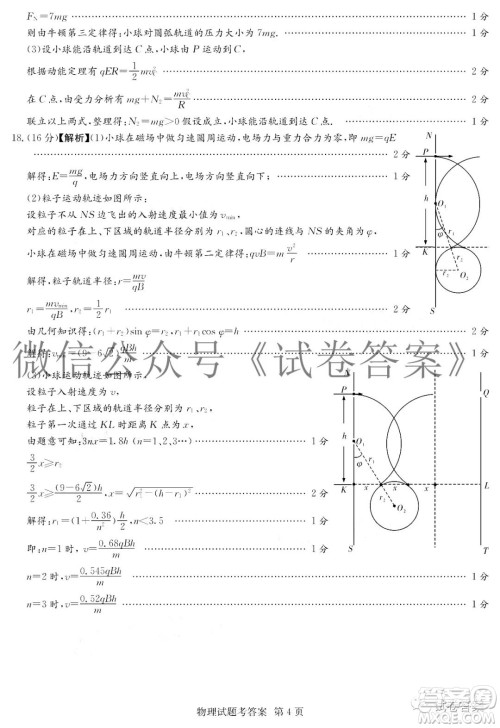 F_N=7mg 1分
则由牛顿第三定律得:小球对圆弧轨道的压力大小为7mg. 1分
(3)设小球能沿轨道到达C点,小球由P运动到C,
根据动能定理有qER=1/2 mv_C^2 2分
在C点,由受力分析得:mg+N_2=mv_C^2/R 2分
联立以上两式,整理得:N_2=mg>0假设成立,小球能沿轨道到达C点. 1分
18.(16分)【解析】(1)小球在磁场中做匀速圆周运动,电场力与重力合力为零,即mg=qE
2分
解得:E=mg/q,电场力方向竖直向上,电场方向竖直向下; 1分
(2)粒子运动轨迹如图所示:
设粒子不从NS边飞出的入射速度最小值为v_min,
对应的粒子在上、下区域的轨道半径分别为r_1、r_2,圆心的连线与NS的夹角为φ,
小球在磁场中做匀速圆周运动,由牛顿第二定律得:qvB=m v^2/r 1分
解得,粒子轨道半径:r=mv/qB
r_1=mv_min/qB,r_2=1/2 r_1 2分
由几何知识得:(r_1+r_2)sin φ=r_2,r_1+r_1cos φ=h 2分
解得:v_min=(9-6√2)qBh/m 1分
(3)小球运动轨迹如图所示,
设粒子入射速度为v,
粒子在上、下区域的轨道半径分别为r_1,r_2,
粒子第一次通过KL时距离K点为x,
由题意可知:3nx=1.8h (n=1,2,3…) 1分
3/2 x≥r_2
3/2 x≥(9-6√2)h/2,x=√(r_1^2-(h-r_1)^2) 2分
解得:r_1=(1+0.36/n^2)h/2,n<3.5 1分
即:n=1时,v=0.68qBh/m 1分
n=2时,v=0.545qBh/m 1分
n=3时,v=0.52qBh/m 1分
N
P
h
O_1
φ
r_1
K
L
r_2
O_2
S
N
M
P
h
O_1
φ
r_1
K
x
x
L
O_2
S
T
微信公众号《试卷答案》
物理试题参考答案 第4页